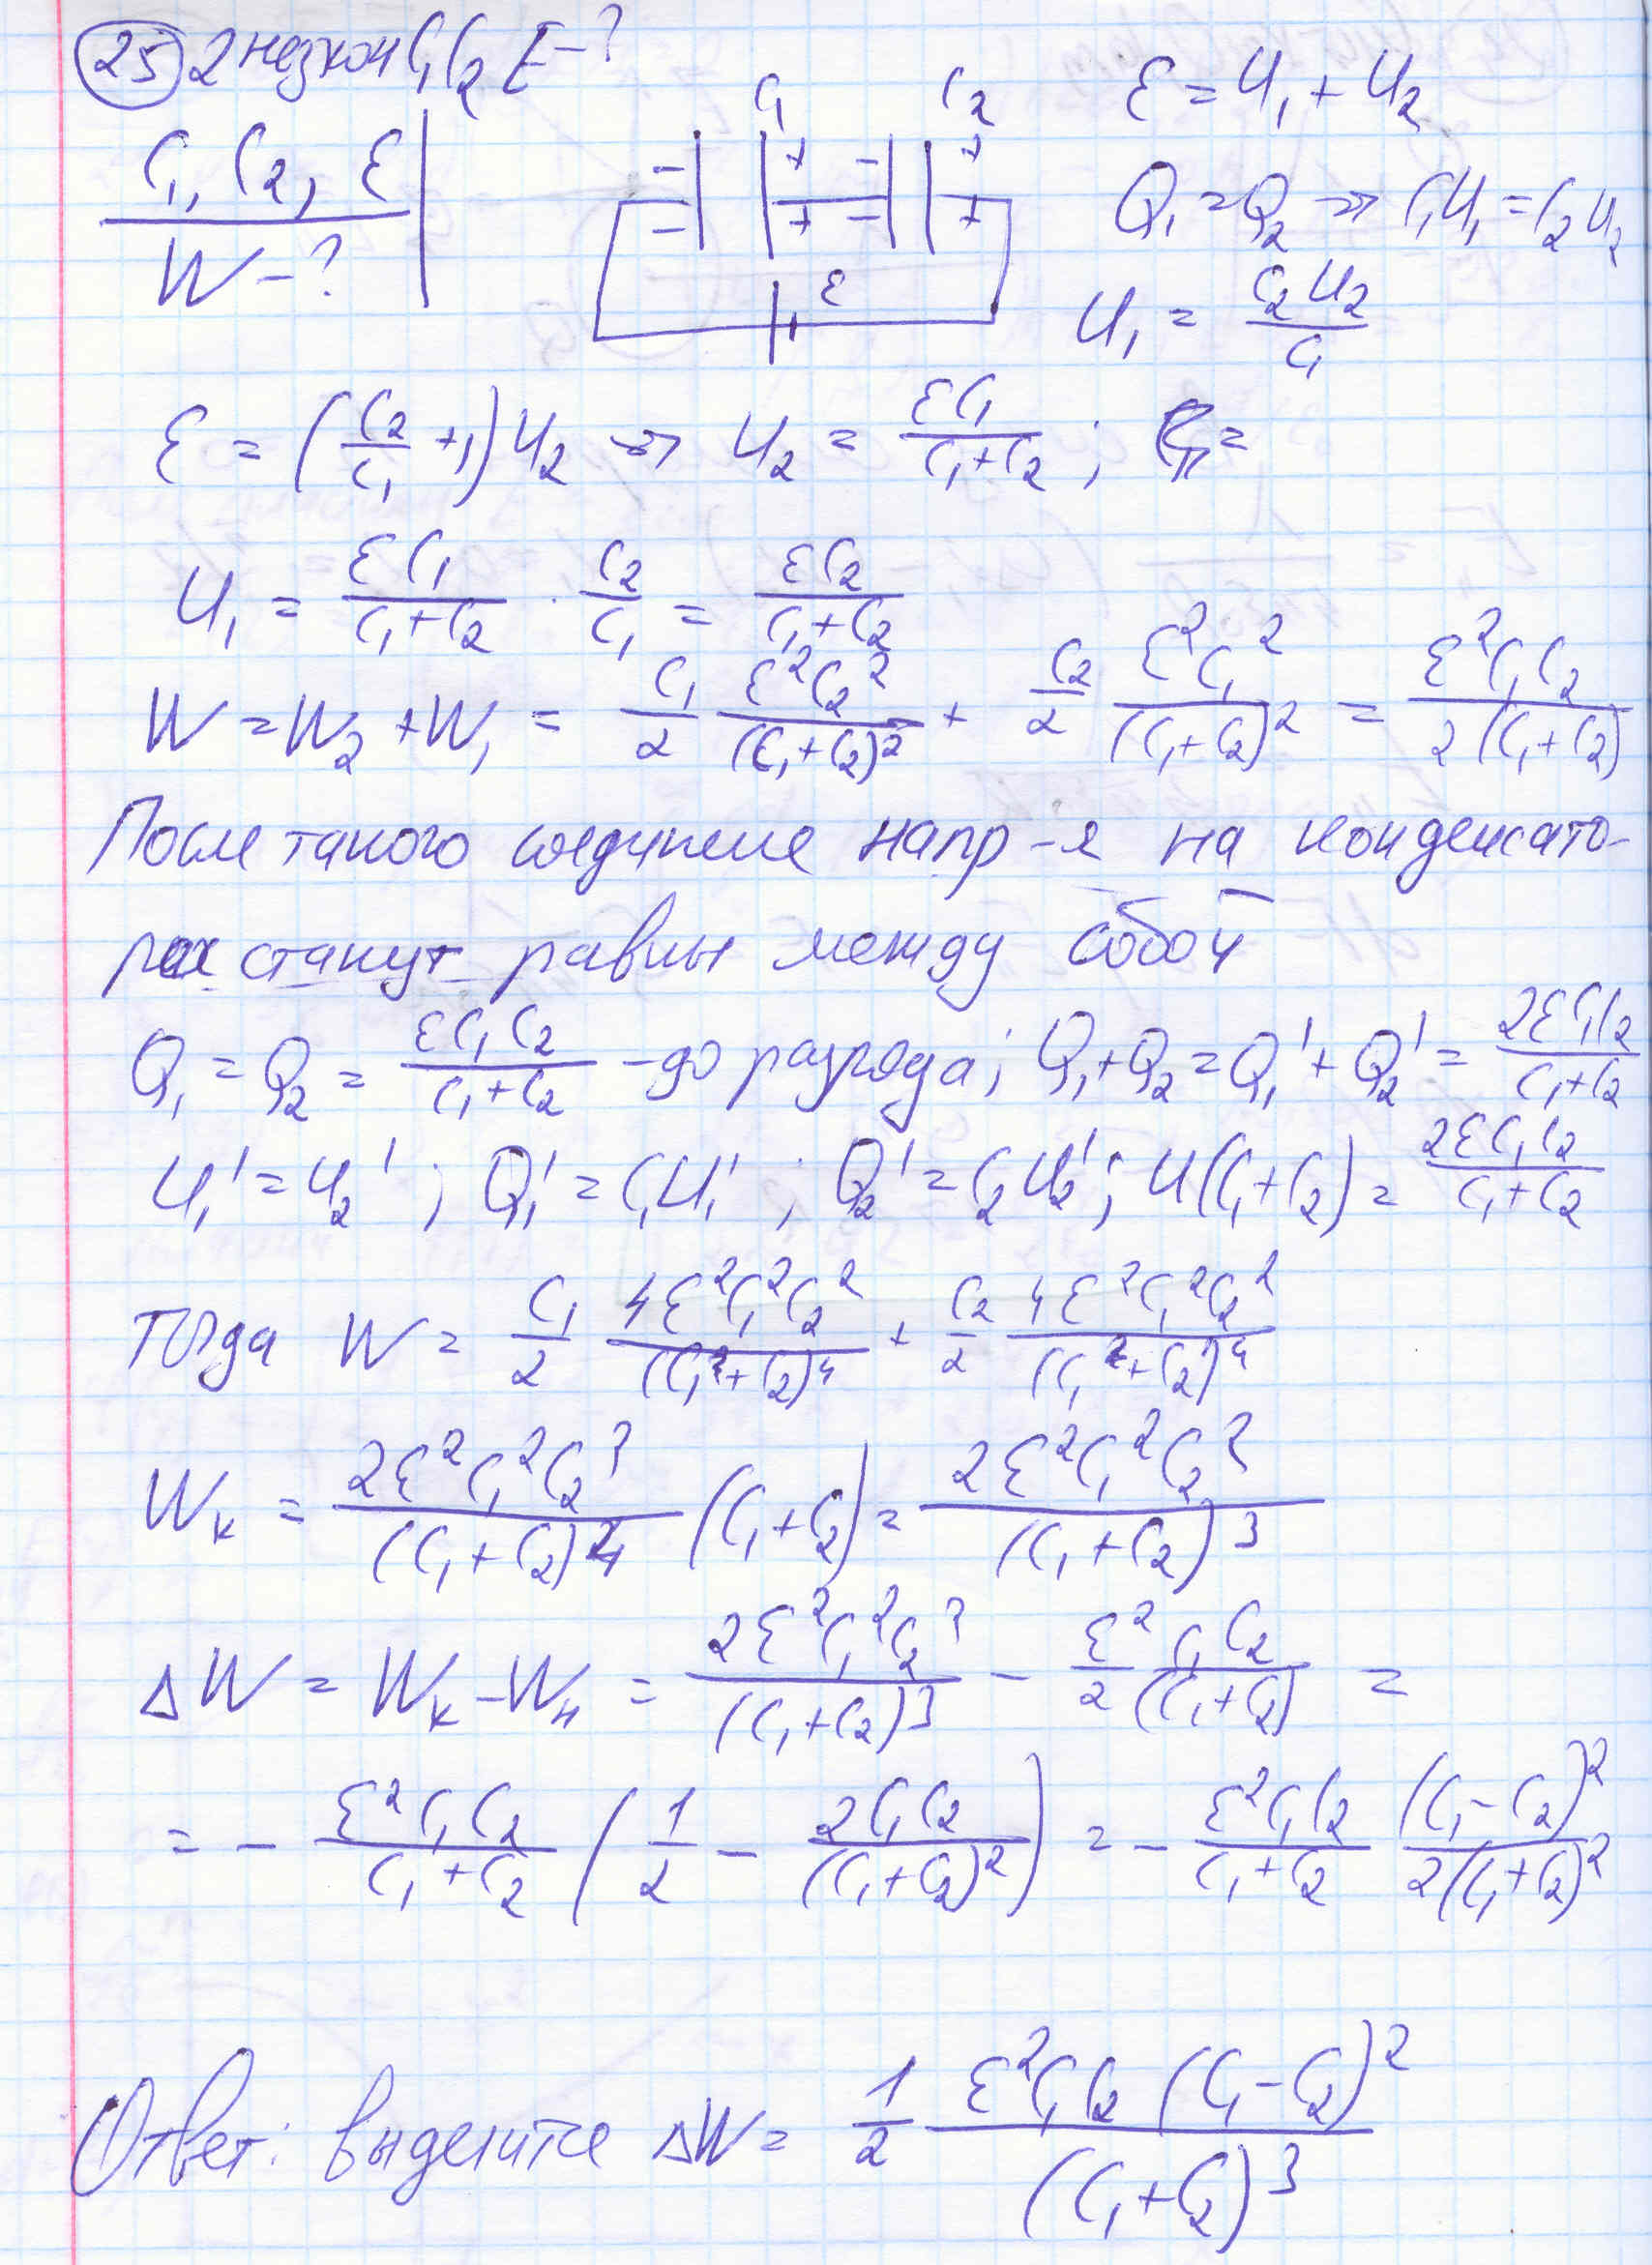 25 2 незкон C₁C₂ E-?
C₁, C₂, ℰ
W-?
C₁ C₂
- + - +
- + - +
ℰ
ℰ = U₁ + U₂
Q₁ = Q₂ => C₁U₁ = C₂U₂
U₁ = C₂U₂/C₁
ℰ = (C₂/C₁ + 1)U₂ => U₂ = ℰC₁/(C₁+C₂);
U₁ = ℰC₁/(C₁+C₂) · C₂/C₁ = ℰC₂/(C₁+C₂)
W = W₂ + W₁ = C₁/2 ℰ²C₂²/(C₁+C₂)² + C₂/2 ℰ²C₁²/(C₁+C₂)² = ℰ²C₁C₂/2(C₁+C₂)
После такого соединение напр-я на конденсато-
рах станут равны между собой
Q₁ = Q₂ = ℰC₁C₂/(C₁+C₂) - до разряда; Q₁+Q₂ = Q₁'+Q₂' = 2ℰC₁C₂/(C₁+C₂)
U₁' = U₂'; Q₁' = C₁U₁'; Q₂' = C₂U₂'; U(C₁+C₂) = 2ℰC₁C₂/(C₁+C₂)
Тогда W = C₁/2 4ℰ²C₁²C₂²/(C₁+C₂)⁴ + C₂/2 4ℰ²C₁²C₂²/(C₁+C₂)⁴
Wк = 2ℰ²C₁²C₂²/(C₁+C₂)⁴ (C₁+C₂) = 2ℰ²C₁²C₂²/(C₁+C₂)³
ΔW = Wк - Wн = 2ℰ²C₁²C₂²/(C₁+C₂)³ - ℰ²/2 C₁C₂/(C₁+C₂) =
= - ℰ²C₁C₂/(C₁+C₂) (1/2 - 2C₁C₂/(C₁+C₂)²) = - ℰ²C₁C₂/(C₁+C₂) (C₁-C₂)²/2(C₁+C₂)²
Ответ: выделится ΔW = 1/2 ℰ²C₁C₂(C₁-C₂)²/(C₁+C₂)³